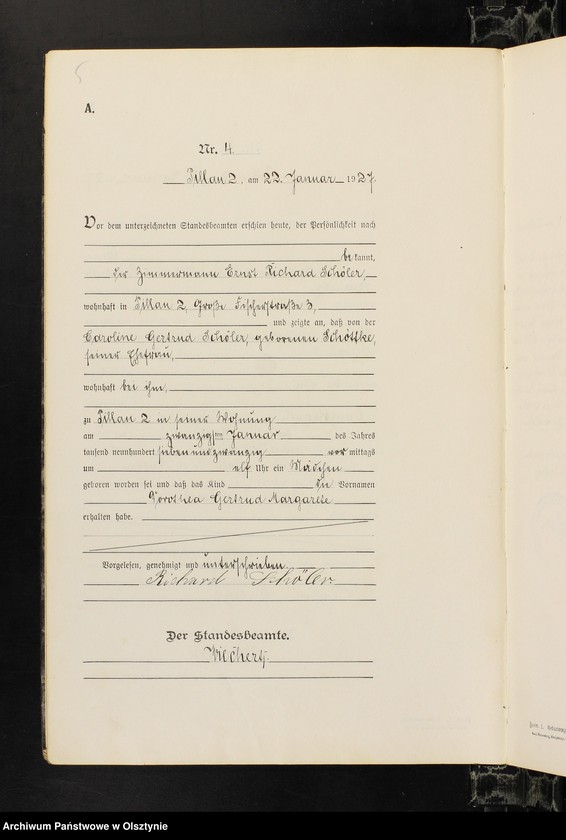 5
A.
Nr. 4
Pillau 2. am 22. Januar 1927.
Vor dem unterzeichneten Standesbeamten erschien heute, der Persönlichkeit nach
be kannt,
der Zimmermann Ernst Richard Schöler,
wohnhaft in Pillau 2, Große Fischerstraße 3,
und zeigte an, daß von der
Caroline Gertrud Schöler, geborenen Schöttke,
seiner Ehefrau,
wohnhaft bei ihm,
zu Pillau 2 in seiner Wohnung
am zwanzigsten Januar des Jahres
tausend neunhundert sieben und zwanzig vor mittags
um elf Uhr ein Mädchen
geboren worden sei und daß das Kind die Vornamen
Dorothea Gertrud Margarete
erhalten habe.
Vorgelesen, genehmigt und unterschrieben
Richard Schöler.
Der Standesbeamte.
Archiwum Państwowe w Olsztynie